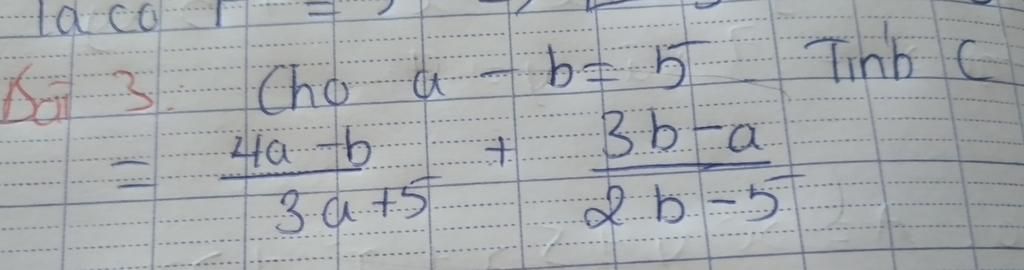 Ta có
Bài 3: Cho a - b = 5 Tính C
= \frac{4a - b}{3a + 5} + \frac{3b - a}{2b - 5}